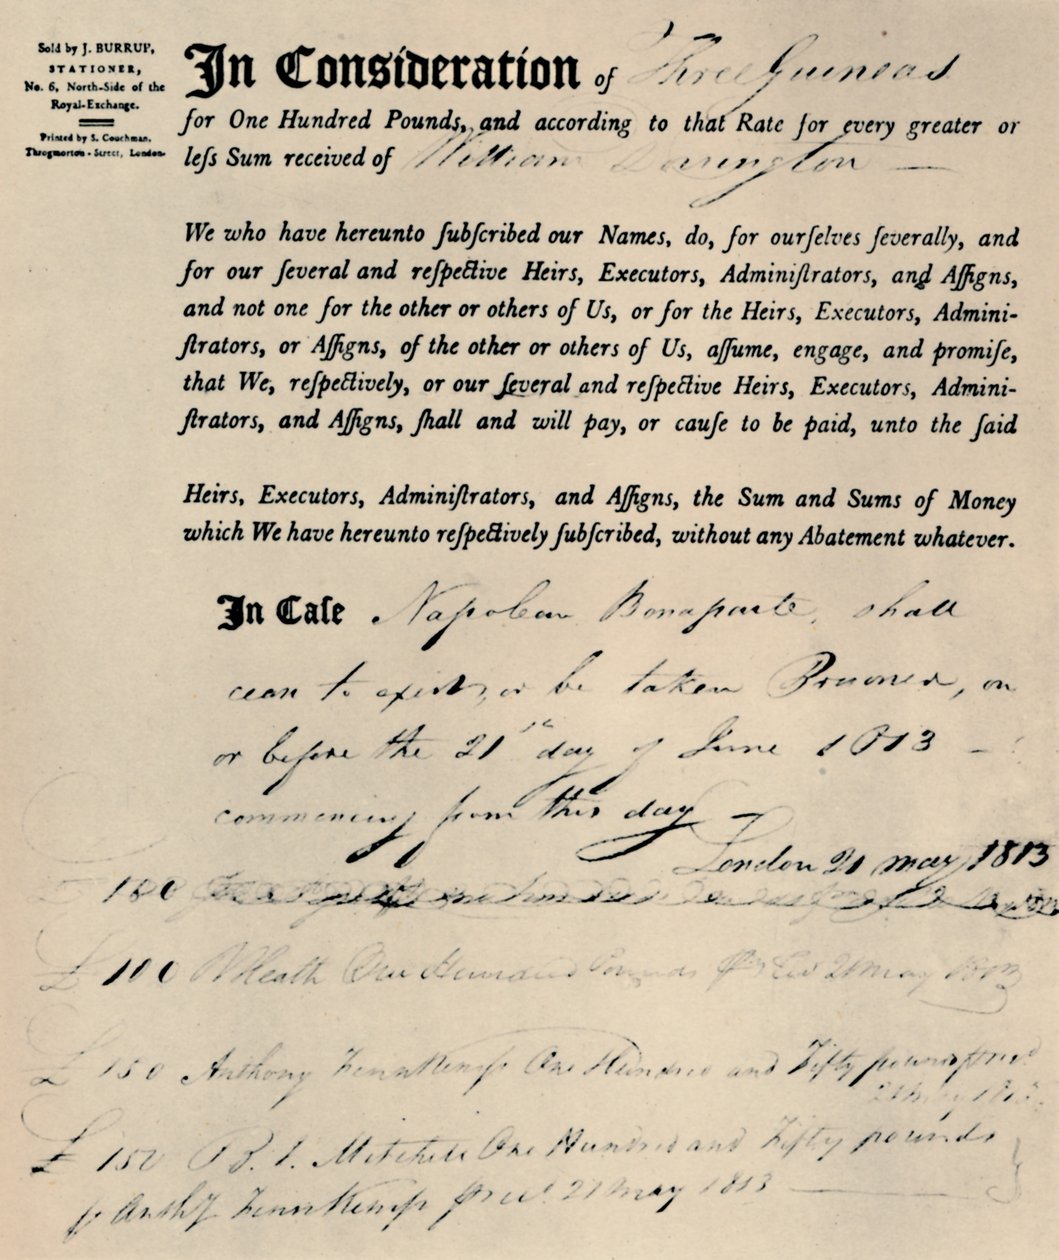 Sold by J. BURRUP,
STATIONER,
No. 6, North-Side of the
Royal-Exchange.
Printed by S. Couchman,
Throgmorton-Street, London.
In Conſideration of Three Guineas
for One Hundred Pounds, and according to that Rate for every greater or
leſs Sum received of William Dorrington
We who have hereunto ſubſcribed our Names, do, for ourſelves ſeverally, and
for our ſeveral and reſpective Heirs, Executors, Adminiſtrators, and Aſſigns,
and not one for the other or others of Us, or for the Heirs, Executors, Admini-
ſtrators, or Aſſigns, of the other or others of Us, aſſume, engage, and promiſe,
that We, reſpectively, or our ſeveral and reſpective Heirs, Executors, Admini-
ſtrators, and Aſſigns, ſhall and will pay, or cauſe to be paid, unto the ſaid
Heirs, Executors, Adminiſtrators, and Aſſigns, the Sum and Sums of Money
which We have hereunto reſpectively ſubſcribed, without any Abatement whatever.
In Caſe Napoleon Bonaparte shall
cease to exist, or be taken Prisoner, on
or before the 21st day of June 1813 —
commencing from this day —
London 21 may 1813
£ 100 Heath One Hundred Pounds 21 May 1813
£ 150 Anthony One Hundred and Fifty pounds
21 May 1813
£ 150 Mitchell One Hundred and Fifty pounds
21 May 1813